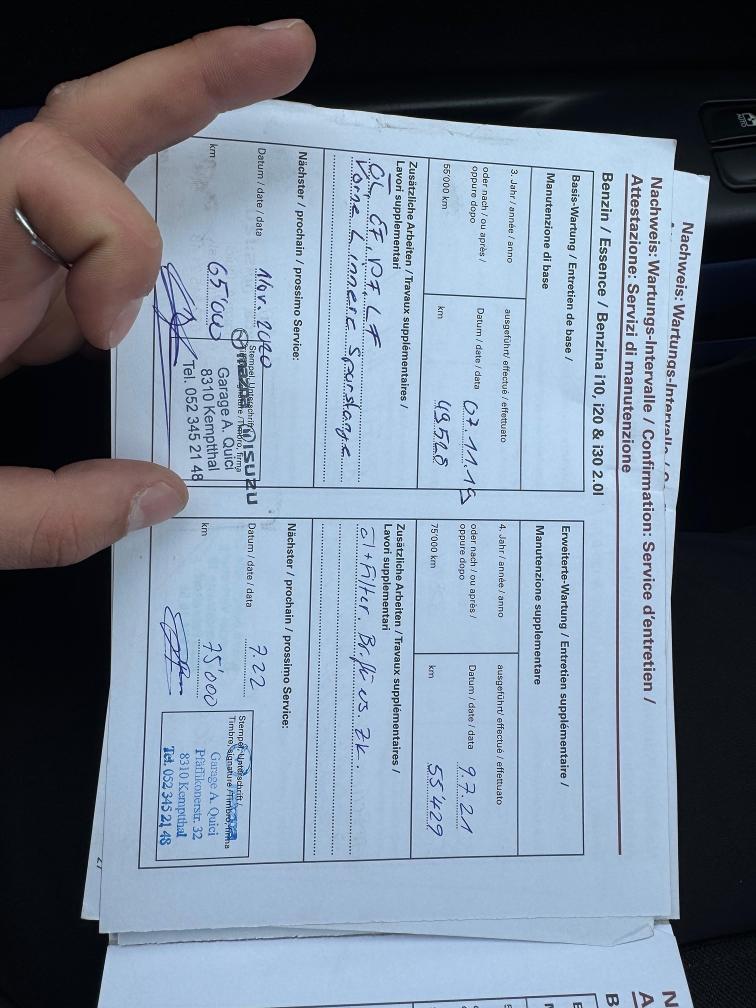 Nachweis: Wartungs-Intervalle /
Nachweis: Wartungs-Intervalle / Confirmation: Service d'entretien /
Attestazione: Servizi di manutenzione
Benzin / Essence / Benzina i10, i20 & i30 2.0l
Basis-Wartung / Entretien de base /
Manutenzione di base
3. Jahr / année / anno
oder nach / ou après /
oppure dopo
55'000 km
ausgeführt/ effectué / effettuato
Datum / date / data 07.11.19
km 49528
Zusätzliche Arbeiten / Travaux supplémentaires /
Lavori supplementari
Vorne L innere Spurstange
Nächster / prochain / prossimo Service:
Datum / date / data Nov. 2020
km 65'000
Stempel, Unterschrift
mazda ISUZU
Garage A. Quici
8310 Kemptthal
Tel. 052 345 21 48
Erweiterte-Wartung / Entretien supplémentaire /
Manutenzione supplementare
4. Jahr / année / anno
oder nach / ou après /
oppure dopo
75'000 km
ausgeführt/ effectué / effettuato
Datum / date / data 9.7.21
km 55'429
Zusätzliche Arbeiten / Travaux supplémentaires /
Lavori supplementari
Öl + Filter. Br.fl. us. ZK.
Nächster / prochain / prossimo Service:
Datum / date / data 7.22
km 75'000
Stempel, Unterschrift /
Timbre, signature / Timbro, firma
Garage A. Quici
Pfäffikonerstr. 32
8310 Kemptthal
Tel. 052 345 21 48